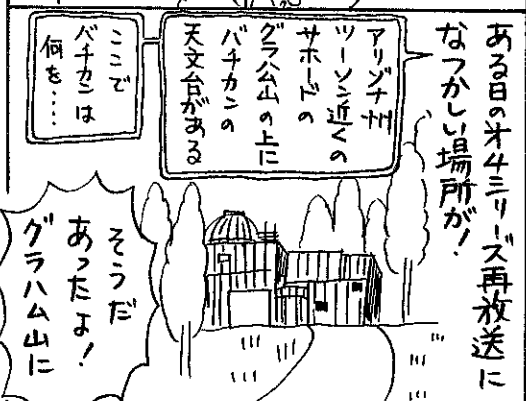 ある日の才4シリーズ再放送に
なつかしい場所が!
アリゾナ州
ツーソン近くの
サホードの
グラハム山の上に
バチカンの
天文台がある
ここで
バチカンは
何を‥‥
そうだ
あったよ!
グラハム山に